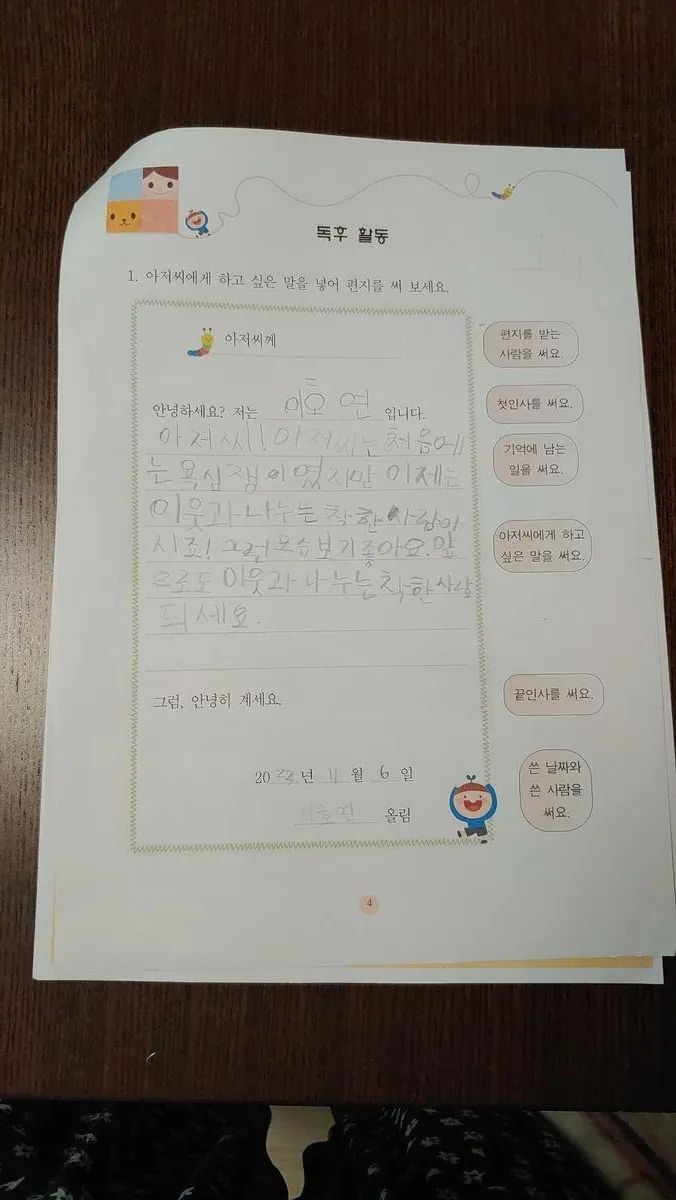 독후 활동
1. 아저씨에게 하고 싶은 말을 넣어 편지를 써 보세요.
아저씨께
편지를 받는
사람을 써요.
안녕하세요? 저는 이효연 입니다.
첫인사를 써요.
아저씨! 아저씨는 처음에
는 욕심쟁이였지만 이제는
이웃과 나누는 착한 사람이
시죠! 그런 모습 보기 좋아요. 앞
으로도 이웃과 나누는 착한 사람
되세요.
기억에 남는
일을 써요.
아저씨에게 하고
싶은 말을 써요.
그럼, 안녕히 계세요.
끝인사를 써요.
20 년 11 월 6 일
올림
쓴 날짜와
쓴 사람을
써요.
4